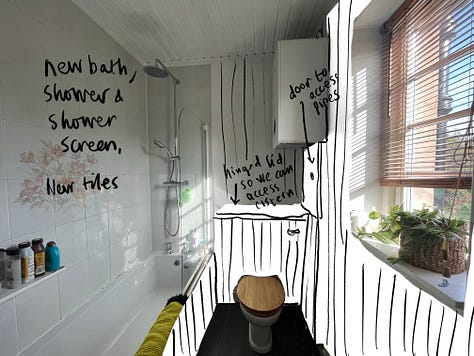 new bath,
shower &
shower
screen,
New tiles
door to
access
pipes
hinged lid
so we can
access
cistern